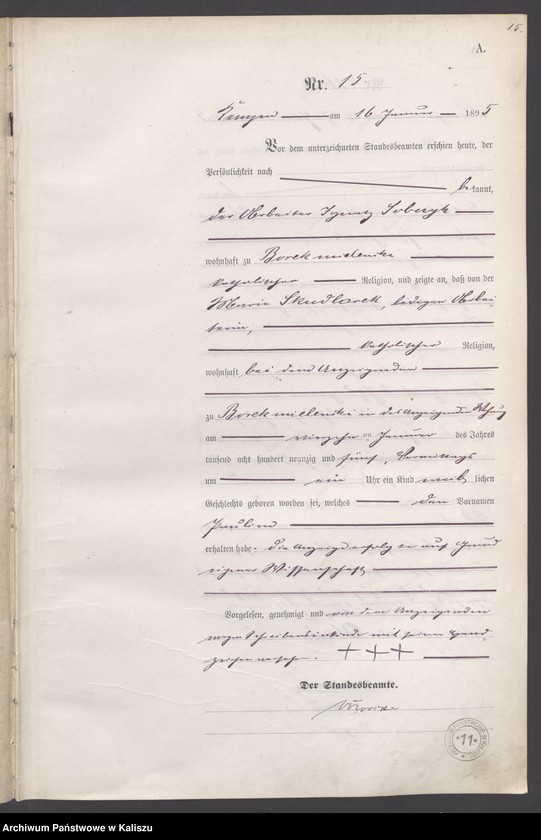 15.
A.
Nr. 15
Kempen am 16 Januar 1895
Vor dem unterzeichneten Standesbeamten erschien heute, der
Persönlichkeit nach
bekannt,
der Arbeiter Ignatz
wohnhaft zu Borek mielencki
katholischer Religion, und zeigte an, daß von der
Maria Skudlarek, lediger Arbei-
terin,
katholischer Religion,
wohnhaft bei dem Anzeigenden
zu Borek mielencki in des Anzeigenden Wohnung
am vierzehn ten Januar des Jahres
tausend acht hundert neunzig und fünf, Vormittags
um ein Uhr ein Kind weib lichen
Geschlechts geboren worden sei, welches den Vornamen
Pauline
erhalten habe. Die Anzeige erfolgte auf Grund
eigener Wissenschaft
Vorgelesen, genehmigt und von dem Anzeigenden
wegen mit seinem Hand-
zeichen versehen. + + +
Der Standesbeamte.
* 11 *
Archiwum Państwowe w Kaliszu